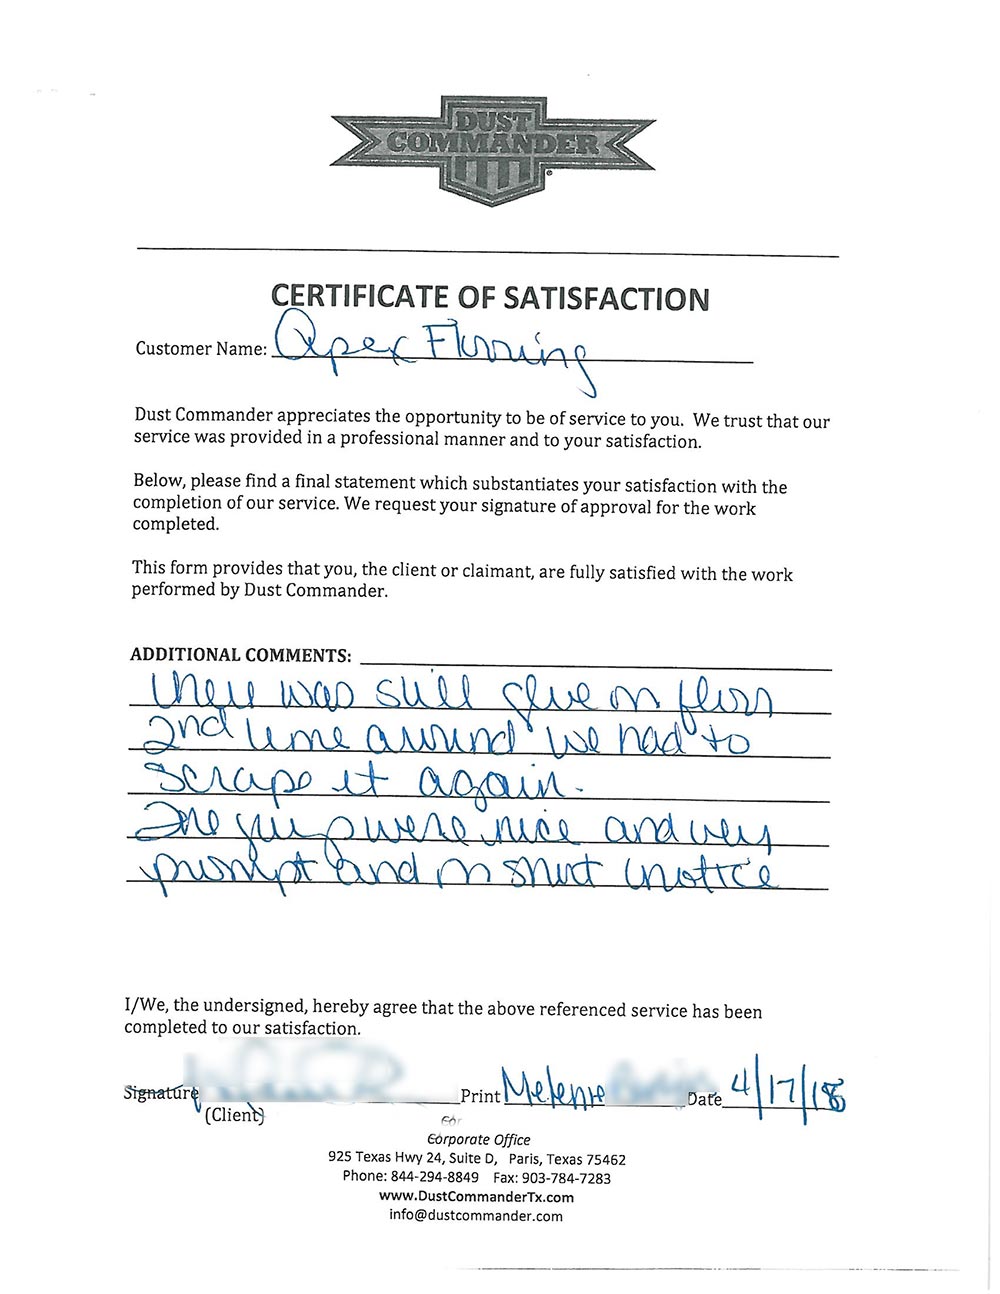 DUST
COMMANDER
CERTIFICATE OF SATISFACTION
Customer Name: Apex Flooring
Dust Commander appreciates the opportunity to be of service to you. We trust that our
service was provided in a professional manner and to your satisfaction.
Below, please find a final statement which substantiates your satisfaction with the
completion of our service. We request your signature of approval for the work
completed.
This form provides that you, the client or claimant, are fully satisfied with the work
performed by Dust Commander.
ADDITIONAL COMMENTS:
There was still glue on floor
2nd time around we had to
scrape it again.
The guys were nice and very
prompt and on short notice
I/We, the undersigned, hereby agree that the above referenced service has been
completed to our satisfaction.
Signature Print Melenie Date 4/17/18
(Client)
Corporate Office
925 Texas Hwy 24, Suite D, Paris, Texas 75462
Phone: 844-294-8849 Fax: 903-784-7283
www.DustCommanderTx.com
info@dustcommander.com